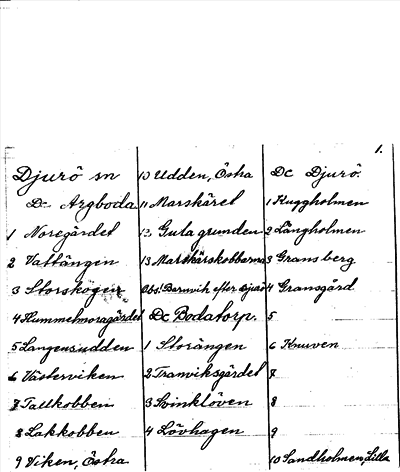 1.
Djurö sn
Dc Argboda
1 Noregärdet
2 Vattängen
3 Storskogen
4 Hummelmoragärdet
5 Långensudden
6 Västerviken
7 Tallkobben
8 Lakkobben
9 Viken, Östra
10 Udden, Östra
11 Marskäret
12 Gula grunden
13 Marskärskobbarna
Obs! Barnvik efter Djurö
Dc Bodatorp.
1 Storängen
2 Tranviksgärdet
3 Svinklöven
4 Lövhagen
Dc Djurö.
1 Kuggholmen
2 Långholmen
3 Gransberg
4 Gransgård
5
6 Knuven
7
8
9
10 Sandholmen, Lilla